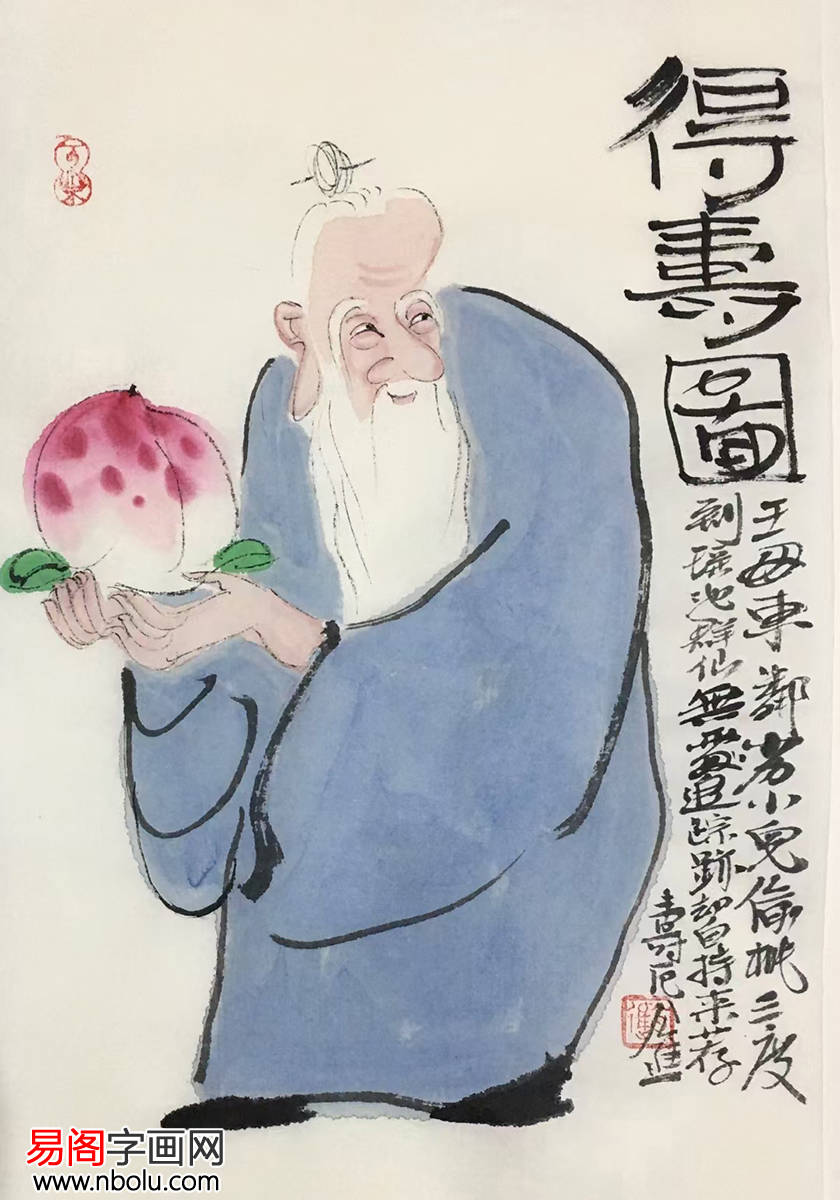 得壽圖
王母東鄰劣小兒偷桃三度
到瑤池群仙無處追踪跡却自持来荐
壽卮
易阁字画网
www.nbolu.com